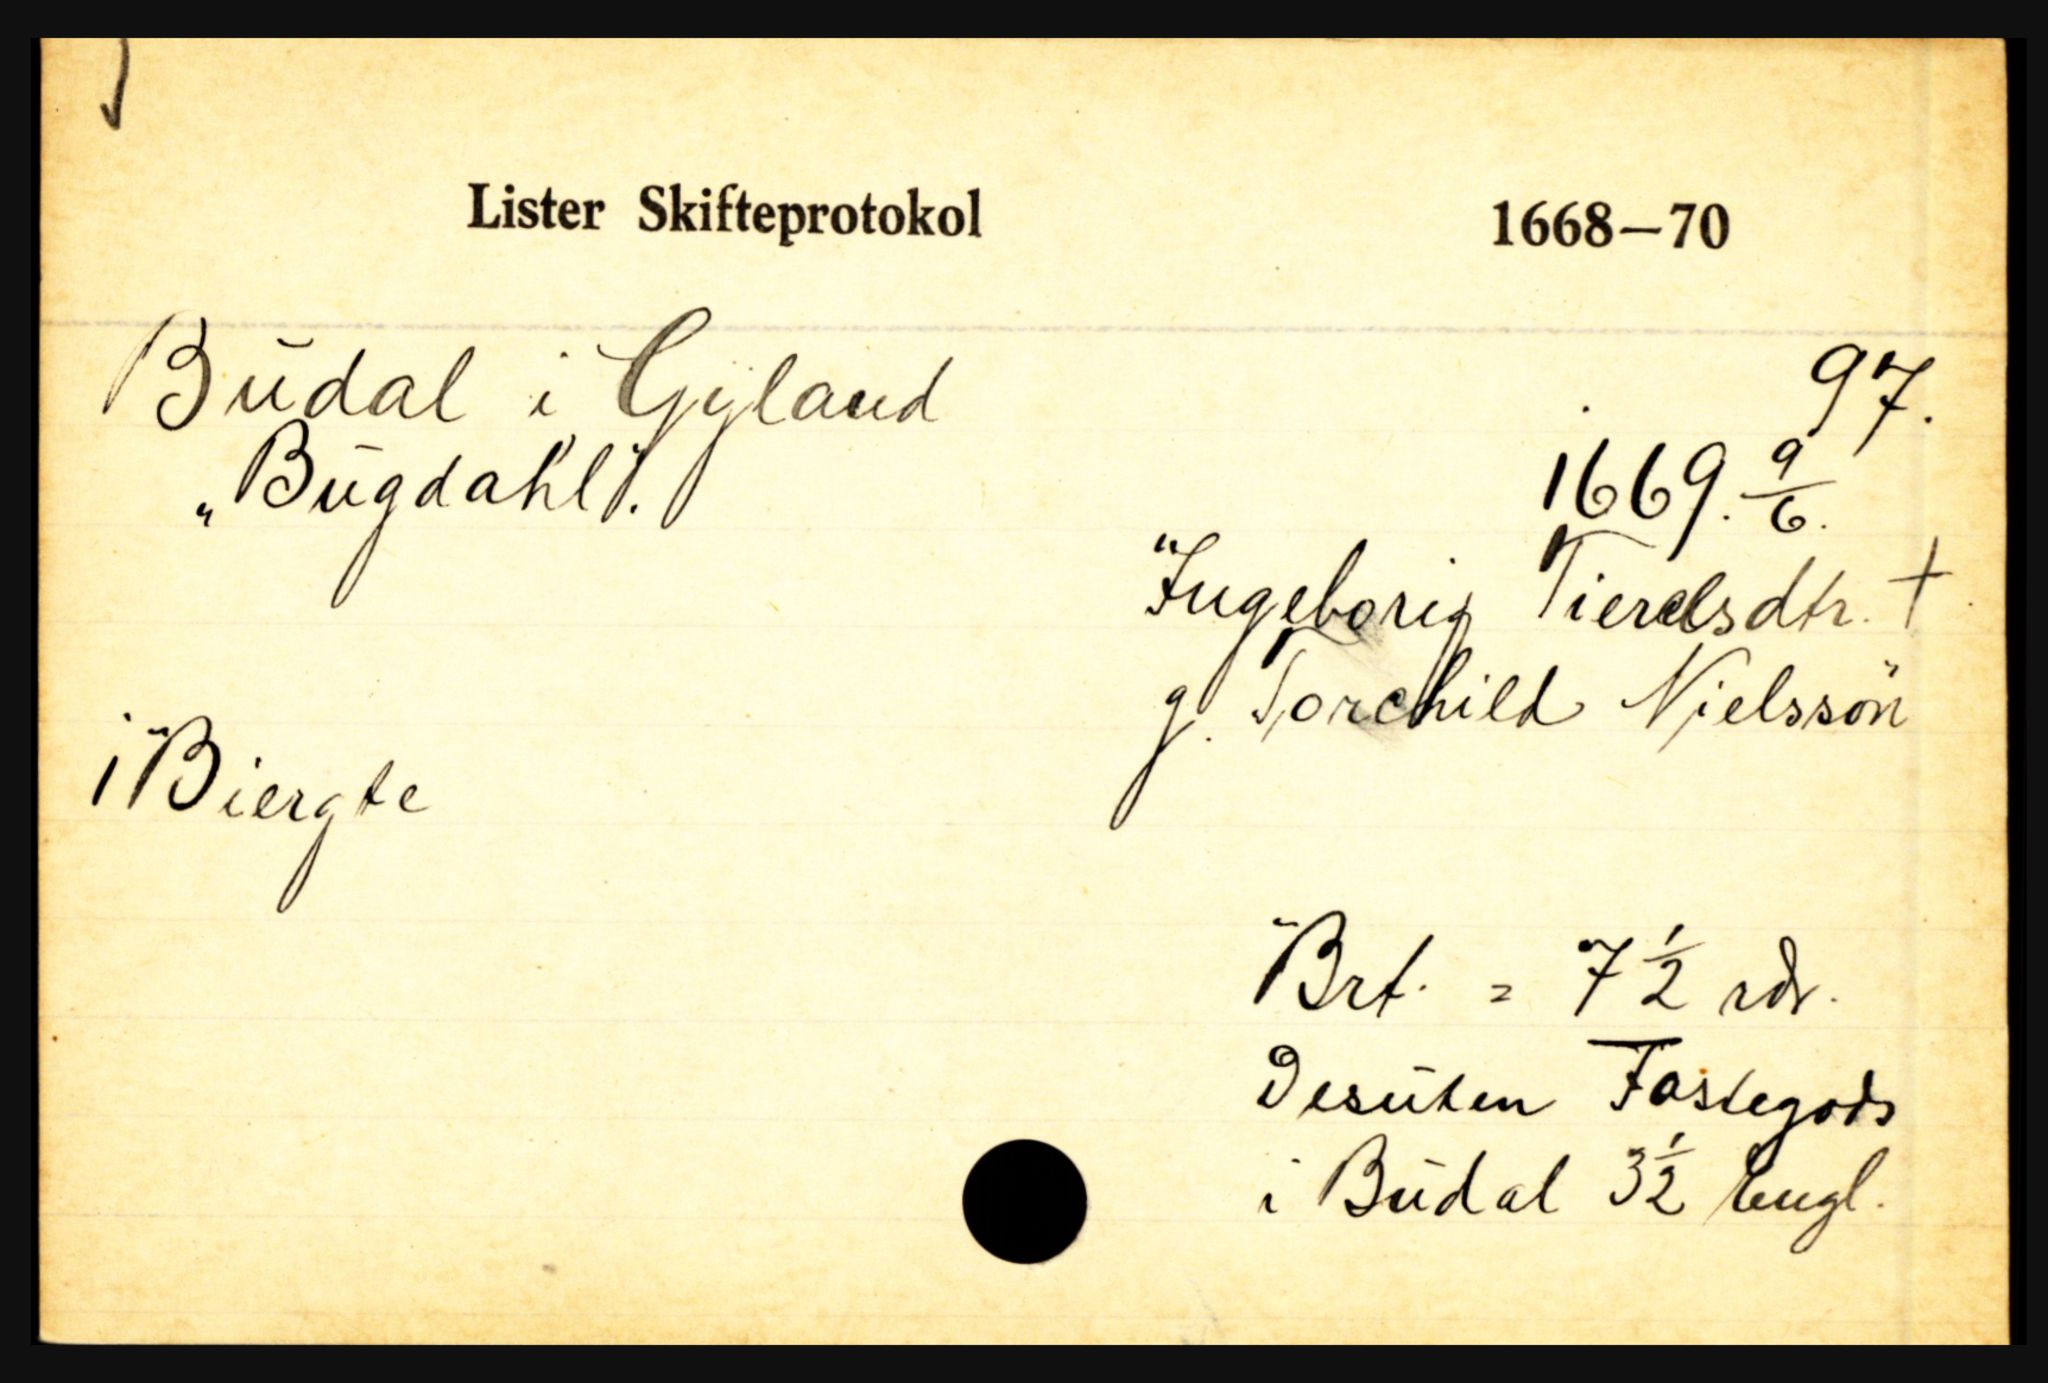 Lister Skifteprotokol 1668—70
Budal i Gyland 97.
„Bugdahl". 1669. 9/6.
Ingeborig Tierelsdtr. +
g. Torchild Nielssön
i Biergte
Brt. = 7 1/2 rdr.
Desuten Fastegods
i Budal 3 1/2 Engl.